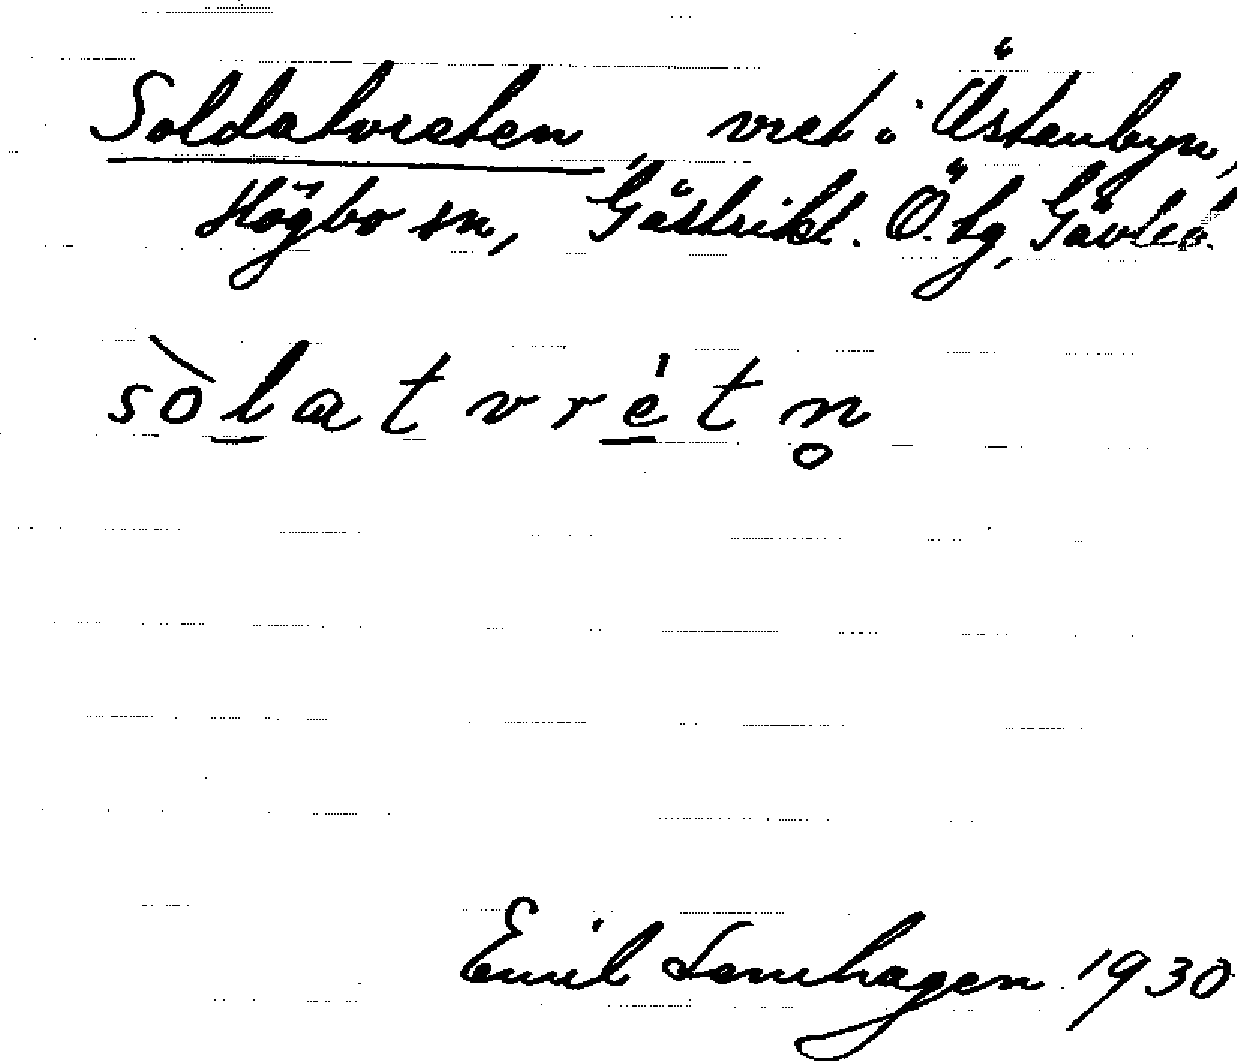 Soldatvreten, vret i Östanbyn,
Högbo sn, Gästrikl. Ö. tg, Gävleb.
sòlatvrétn̥
Emil Lennhagen 1930